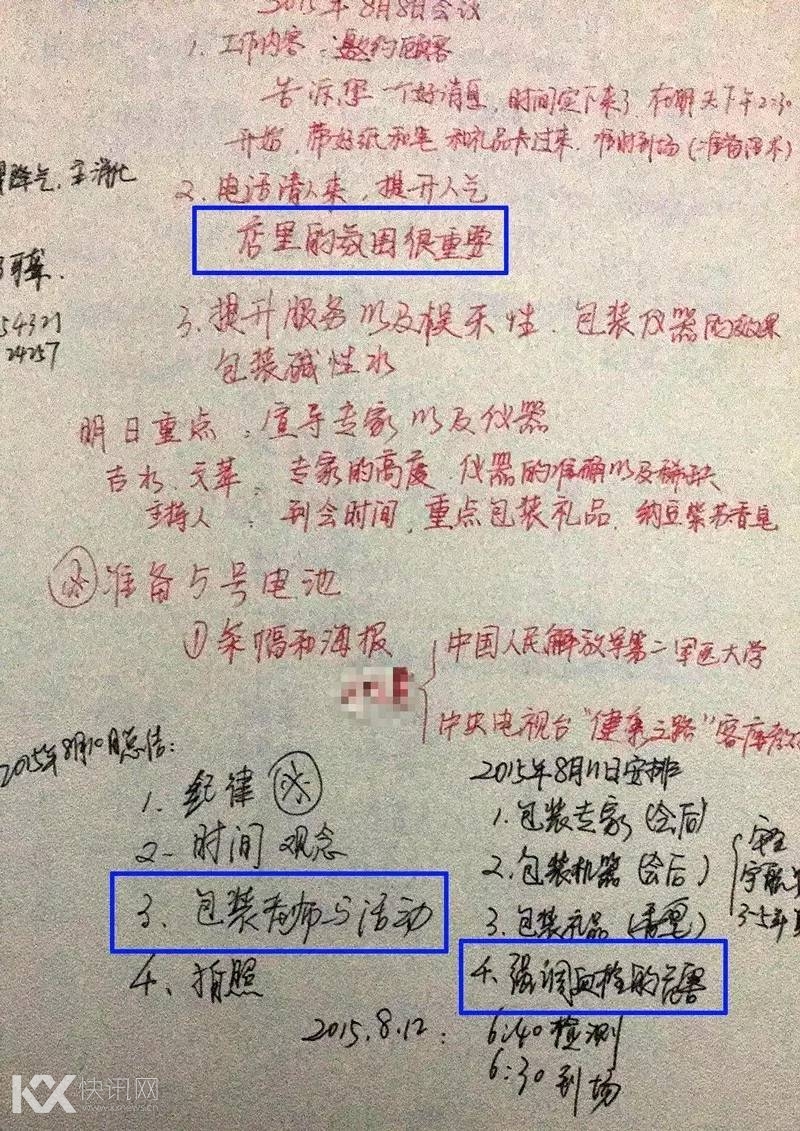 2015年8月8日会议
1. 工作内容：邀约顾客
告诉您一个好消息，时间定下来了 在明天下午2:30
开始，带好纸和笔和礼品卡过来．准时到场（准备话术）
降气，主消化
2. 电话请人来，提升人气
店里的氛围很重要
54321
24257
3. 提升服务以及娱乐性．包装仪器的效果
包装碱性水
明日重点：宣导专家以及仪器
吉水．文苹：专家的高度．仪器的准确以及稀缺
主持人：到会时间，重点包装礼品．纳豆紫苏香皂
准备5号电池
① 条幅和海报
中国人民解放军第二军医大学
中央电视台“健康之路”客座教
2015年8月10日总结：
1. 纪律
2. 时间观念
3、包装老师与活动
4、拍照
2015年8月11日安排
1. 包装专家（会后）
2. 包装机器（会后）
3. 包装礼品（香皂）
4、强调血栓的危害
安全
3-5年
2015.8.12：6:40 检测
6:30 到场
KX 快讯网
www.kxnews.cn